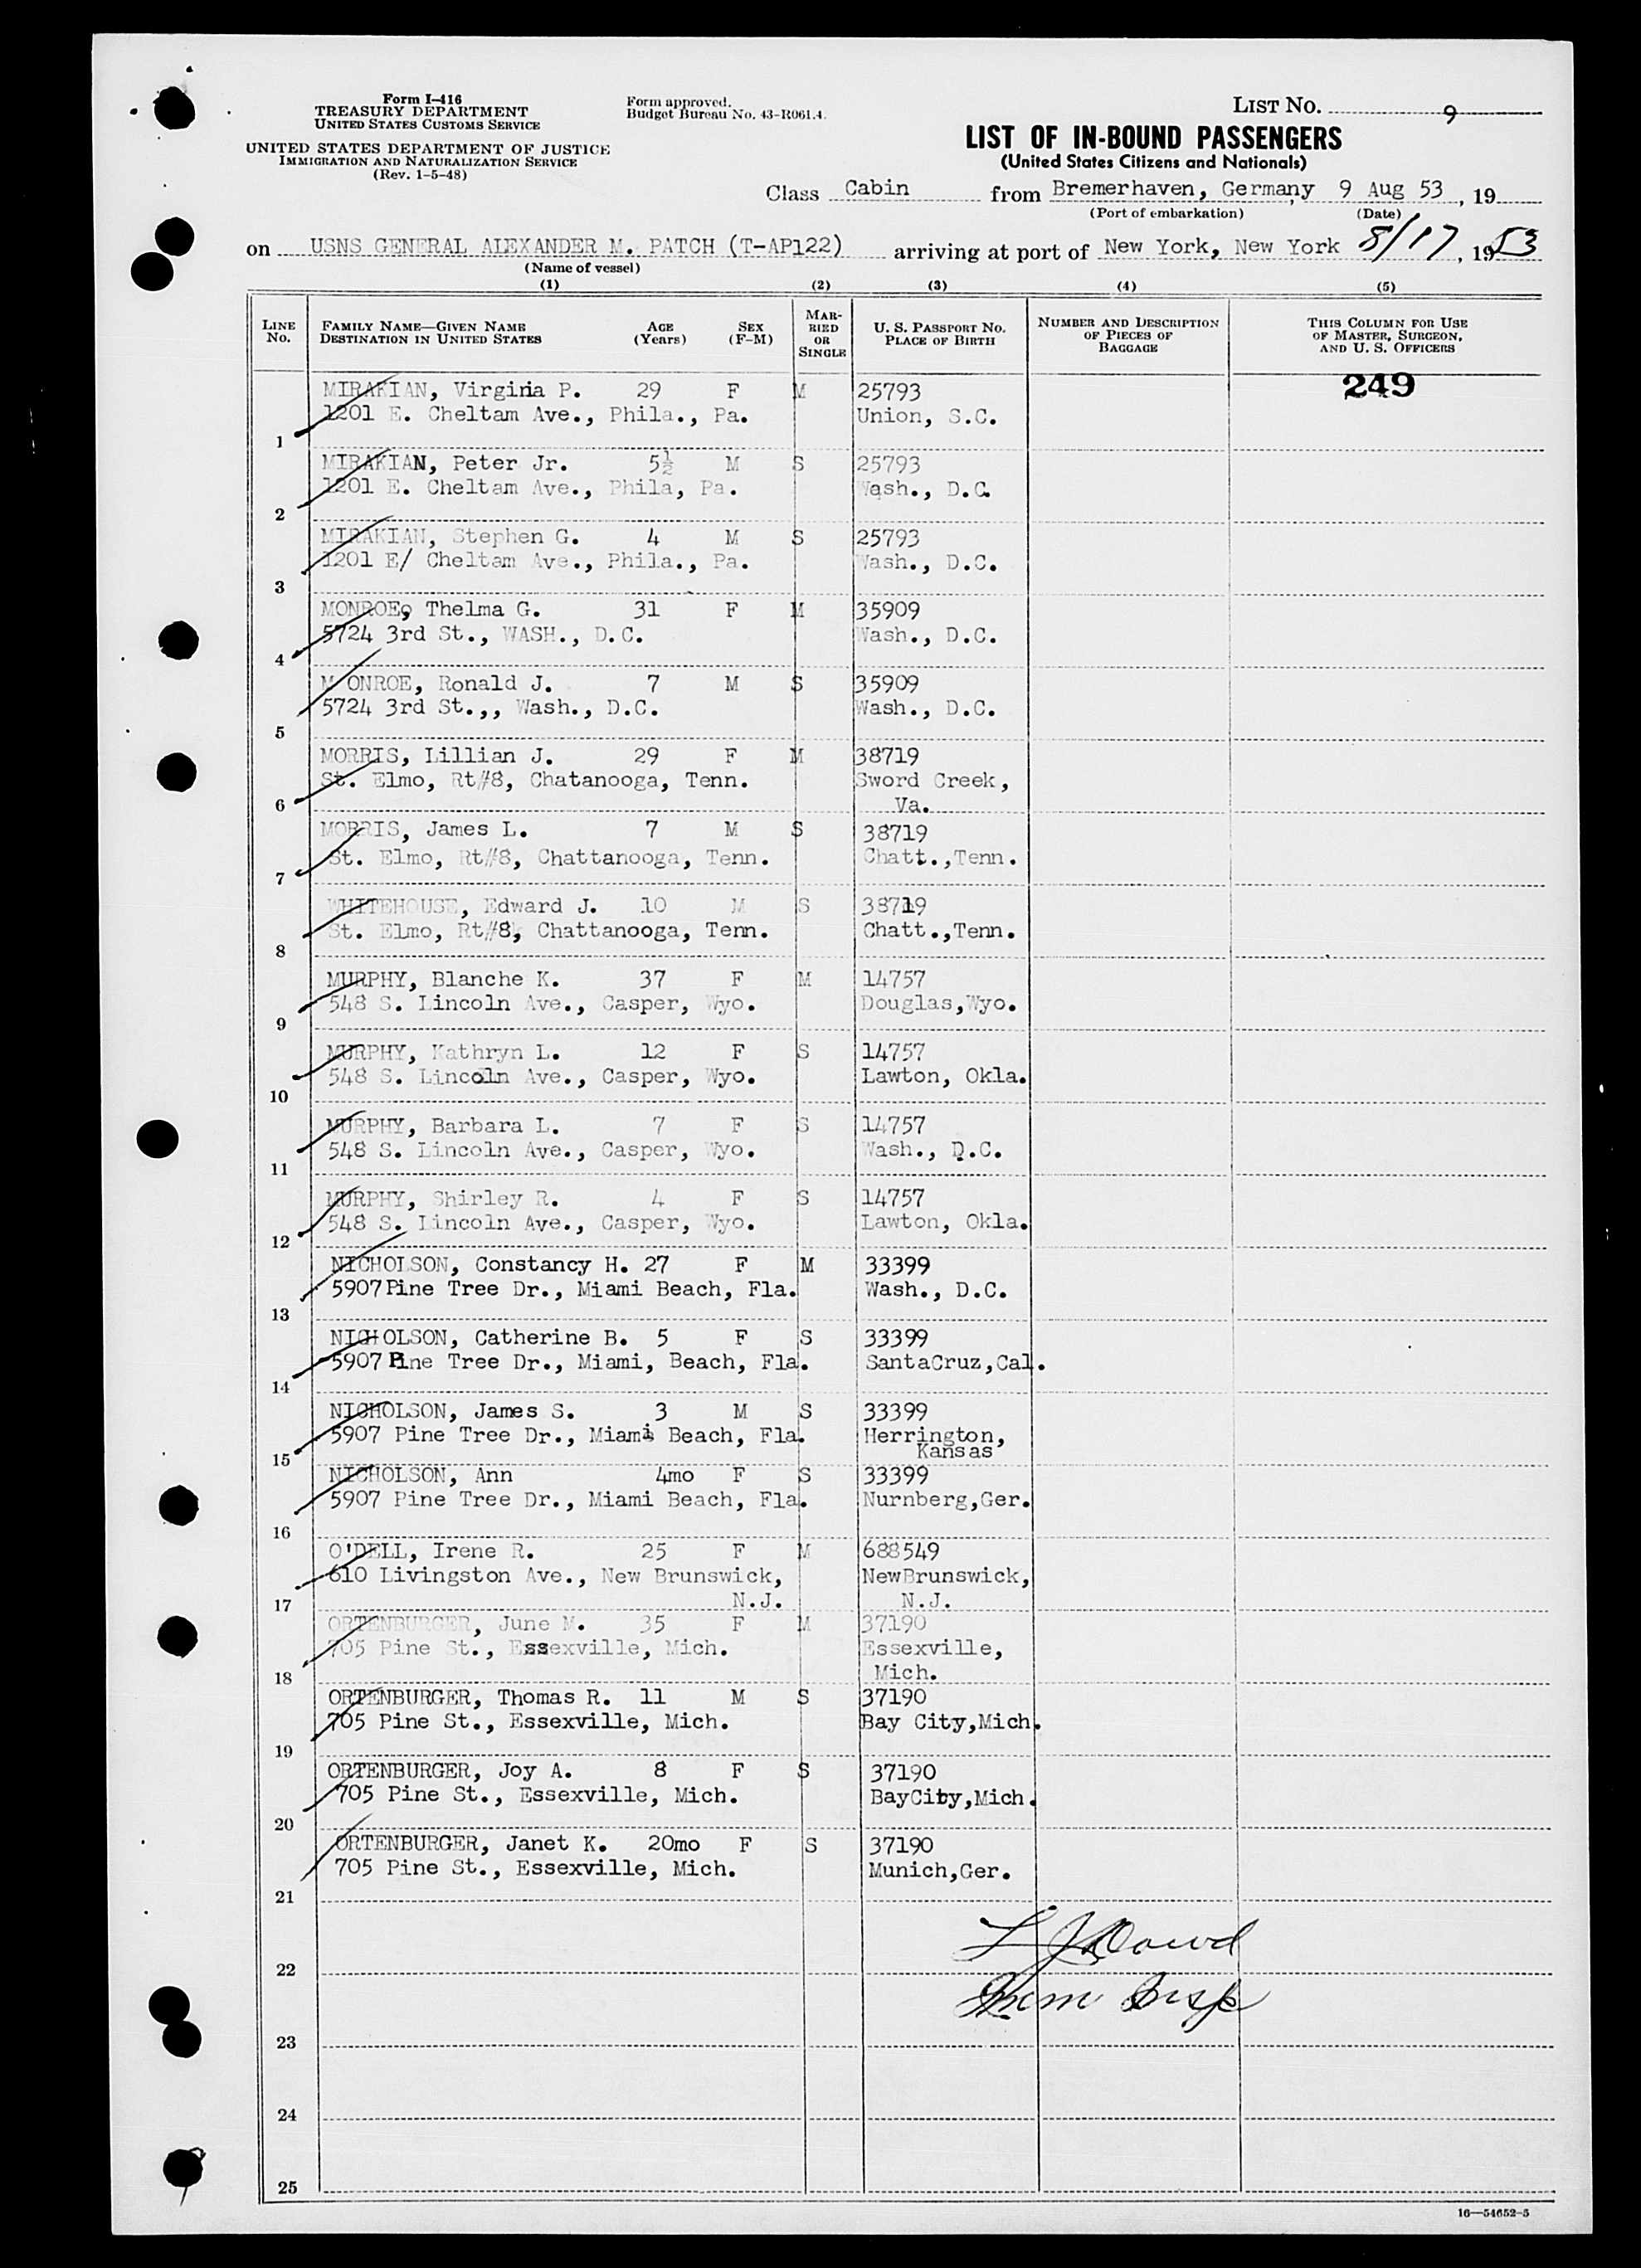 Form I-416
TREASURY DEPARTMENT
UNITED STATES CUSTOMS SERVICE
UNITED STATES DEPARTMENT OF JUSTICE
IMMIGRATION AND NATURALIZATION SERVICE
(Rev. 1-5-48)
Form approved.
Budget Bureau No. 43-R061.4.
LIST NO. 9
LIST OF IN-BOUND PASSENGERS
(United States Citizens and Nationals)
Class Cabin from Bremerhaven, Germany 9 Aug 53, 19
(Port of embarkation) (Date)
on USNS GENERAL ALEXANDER M. PATCH (T-AP122) arriving at port of New York, New York 8/17, 1953
(Name of vessel)
(1) (2) (3) (4) (5)
LINE No. FAMILY NAME—GIVEN NAME DESTINATION IN UNITED STATES AGE (Years) SEX (F-M) MARRIED OR SINGLE U. S. PASSPORT NO. PLACE OF BIRTH NUMBER AND DESCRIPTION OF PIECES OF BAGGAGE THIS COLUMN FOR USE OF MASTER, SURGEON, AND U. S. OFFICERS
249
MIRAKIAN, Virginia P. 29 F M 25793
1201 E. Cheltam Ave., Phila., Pa. Union, S.C.
1
MIRAKIAN, Peter Jr. 5½ M S 25793
1201 E. Cheltam Ave., Phila, Pa. Wash., D.C.
2
MIRAKIAN, Stephen G. 4 M S 25793
1201 E/ Cheltam Ave., Phila., Pa. Wash., D.C.
3
MONROE, Thelma G. 31 F M 35909
5724 3rd St., WASH., D.C. Wash., D.C.
4
MONROE, Ronald J. 7 M S 35909
5724 3rd St.,, Wash., D.C. Wash., D.C.
5
MORRIS, Lillian J. 29 F M 38719
St. Elmo, Rt#8, Chatanooga, Tenn. Sword Creek,
6 Va.
MORRIS, James L. 7 M S 38719
St. Elmo, Rt#8, Chattanooga, Tenn. Chatt.,Tenn.
7
WHITEHOUSE, Edward J. 10 M S 38719
St. Elmo, Rt#8, Chattanooga, Tenn. Chatt.,Tenn.
8
MURPHY, Blanche K. 37 F M 14757
548 S. Lincoln Ave., Casper, Wyo. Douglas,Wyo.
9
MURPHY, Kathryn L. 12 F S 14757
548 S. Lincoln Ave., Casper, Wyo. Lawton, Okla.
10
MURPHY, Barbara L. 7 F S 14757
548 S. Lincoln Ave., Casper, Wyo. Wash., D.C.
11
MURPHY, Shirley R. 4 F S 14757
548 S. Lincoln Ave., Casper, Wyo. Lawton, Okla.
12
NICHOLSON, Constancy H. 27 F M 33399
5907 Pine Tree Dr., Miami Beach, Fla. Wash., D.C.
13
NICHOLSON, Catherine B. 5 F S 33399
5907 Pine Tree Dr., Miami, Beach, Fla. SantaCruz,Cal.
14
NICHOLSON, James S. 3 M S 33399
5907 Pine Tree Dr., Miami Beach, Fla. Herrington,
15 Kansas
NICHOLSON, Ann 4mo F S 33399
5907 Pine Tree Dr., Miami Beach, Fla. Nurnberg,Ger.
16
O'DELL, Irene R. 25 F M 688549
610 Livingston Ave., New Brunswick, NewBrunswick,
17 N.J. N.J.
ORTENBURGER, June M. 35 F M 37190
705 Pine St., Essexville, Mich. Essexville,
18 Mich.
ORTENBURGER, Thomas R. 11 M S 37190
705 Pine St., Essexville, Mich. Bay City,Mich.
19
ORTENBURGER, Joy A. 8 F S 37190
705 Pine St., Essexville, Mich. BayCity,Mich.
20
ORTENBURGER, Janet K. 20mo F S 37190
705 Pine St., Essexville, Mich. Munich,Ger.
21
Dowd
22
Imm Insp
23
24
25
16—54652-5